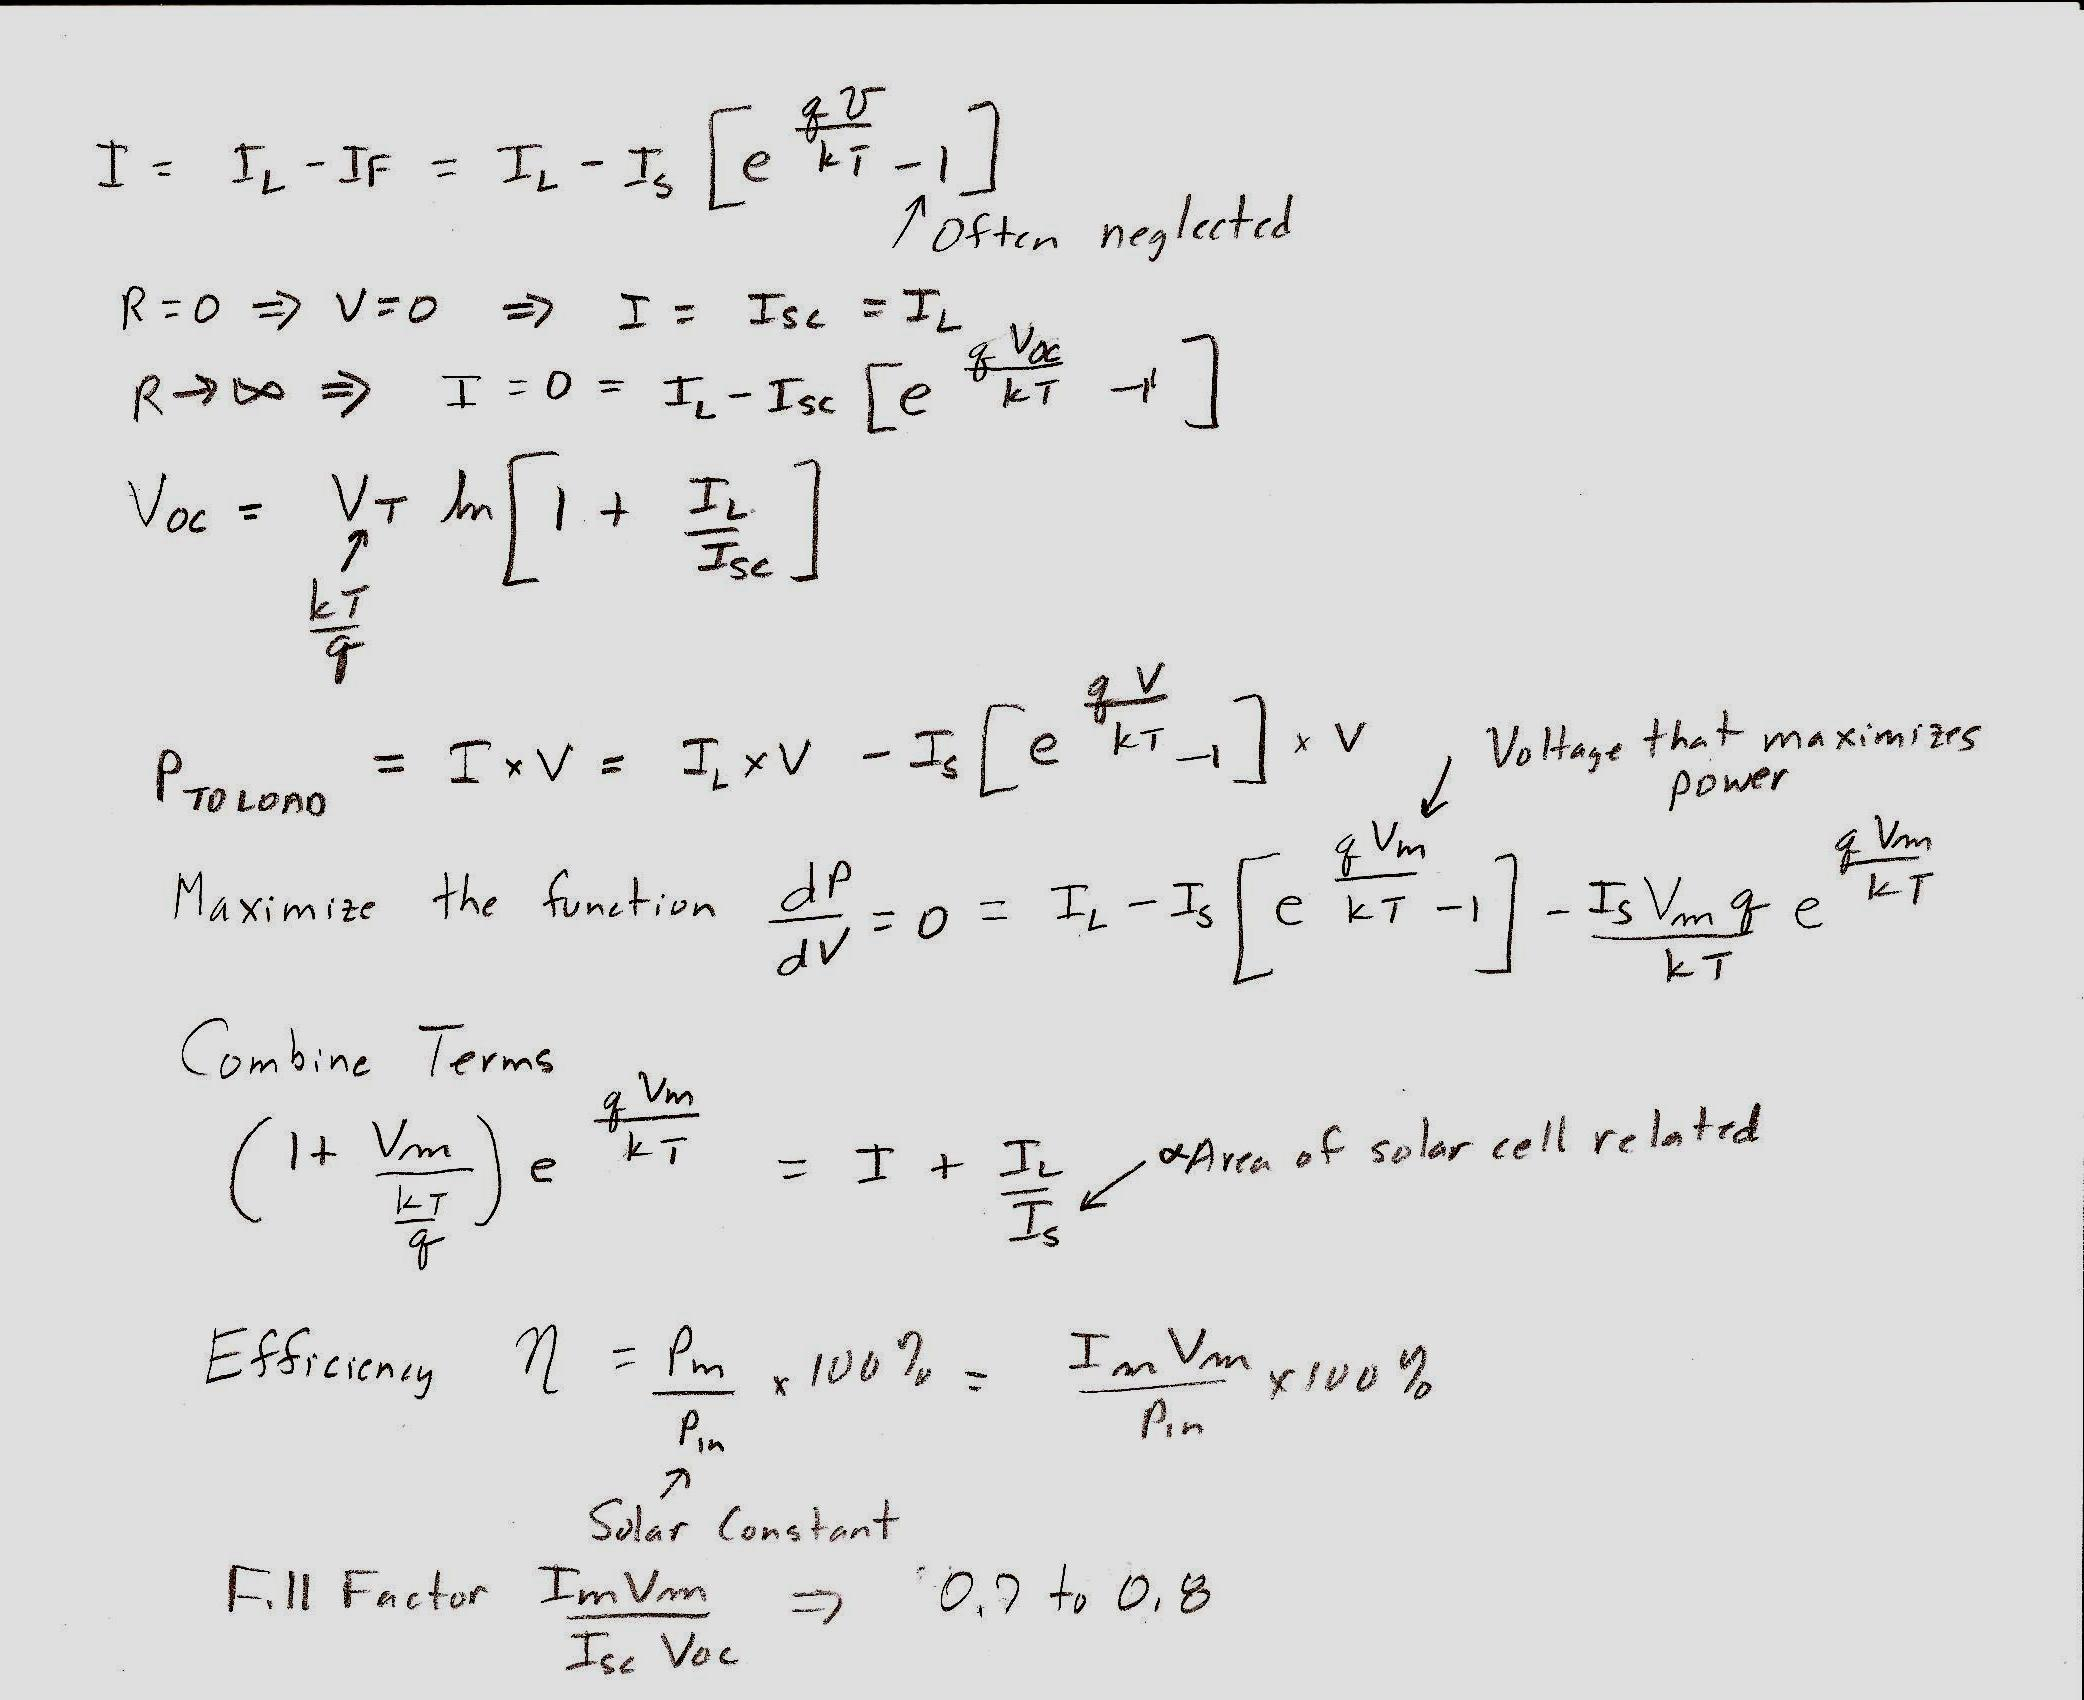 I = I_L - I_F = I_L - I_S [e^{qV/kT} - 1]
↑ Often neglected
R = 0 ⇒ V = 0 ⇒ I = I_SC = I_L
R → ∞ ⇒ I = 0 = I_L - I_SC [e^{qV_OC/kT} - 1]
V_OC = V_T ln[1 + I_L/I_SC]
↑
kT/q
P_TO LOAD = I × V = I_L × V - I_S [e^{qV/kT} - 1] × V
↓ Voltage that maximizes
power
Maximize the function dP/dV = 0 = I_L - I_S [e^{qV_m/kT} - 1] - I_S V_m q/kT e^{qV_m/kT}
Combine Terms
(1 + V_m/(kT/q)) e^{qV_m/kT} = I + I_L/I_S ↙ ∝ Area of solar cell related
Efficiency η = P_m/P_in × 100% = I_m V_m/P_in × 100%
↑
Solar Constant
Fill Factor I_m V_m/I_SC V_OC ⇒ 0.7 to 0.8